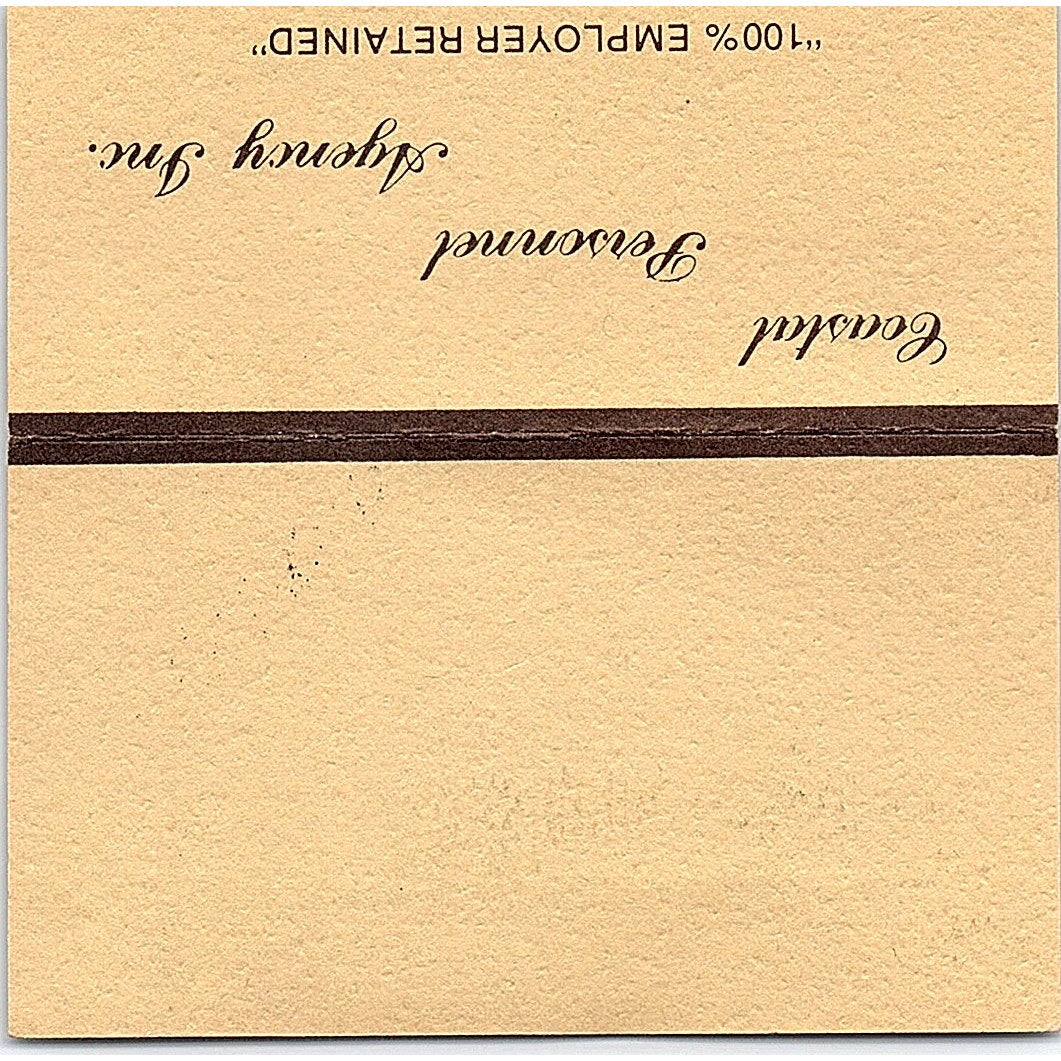 Coastal
Personnel
Agency Inc.
"100% EMPLOYER RETAINED"